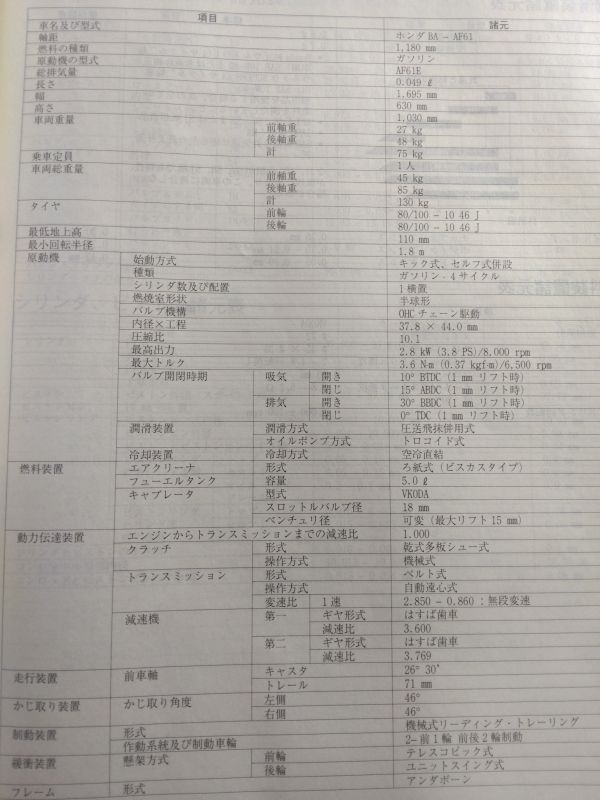 項目 諸元
車名及び型式 ホンダBA－AF61
軸距 1,180 mm
燃料の種類 ガソリン
原動機の型式 AF61E
総排気量 0.049 ℓ
長さ 1,695 mm
幅 630 mm
高さ 1,030 mm
車両重量 前軸重 27 kg
後軸重 48 kg
計 75 kg
乗車定員 1人
車両総重量 前軸重 45 kg
後軸重 85 kg
計 130 kg
タイヤ 前輪 80/100－10 46 J
後輪 80/100－10 46 J
最低地上高 110 mm
最小回転半径 1.8 m
原動機 始動方式 キック式、セルフ式併設
種類 ガソリン・4サイクル
シリンダ数及び配置 1横置
燃焼室形状 半球形
バルブ機構 OHCチェーン駆動
内径×工程 37.8 × 44.0 mm
圧縮比 10.1
最高出力 2.8 kW (3.8 PS)/8,000 rpm
最大トルク 3.6 N·m (0.37 kgf·m)/6,500 rpm
バルブ開閉時期 吸気 開き 10° BTDC (1 mm リフト時)
閉じ 15° ABDC (1 mm リフト時)
排気 開き 30° BBDC (1 mm リフト時)
閉じ 0° TDC (1 mm リフト時)
潤滑装置 潤滑方式 圧送飛抹併用式
オイルポンプ方式 トロコイド式
冷却装置 冷却方式 空冷直結
燃料装置 エアクリーナ 形式 ろ紙式 (ビスカスタイプ)
フューエルタンク 容量 5.0 ℓ
キャブレータ 型式 VK0DA
スロットルバルブ径 18 mm
ベンチュリ径 可変 (最大リフト15 mm)
動力伝達装置 エンジンからトランスミッションまでの減速比 1.000
クラッチ 形式 乾式多板シュー式
操作方式 機械式
トランスミッション 形式 ベルト式
操作方式 自動遠心式
変速比 1速 2.850－0.860：無段変速
減速機 第一 ギヤ形式 はすば歯車
減速比 3.600
第二 ギヤ形式 はすば歯車
減速比 3.769
走行装置 前車軸 キャスタ 26° 30′
トレール 71 mm
かじ取り装置 かじ取り角度 左側 46°
右側 46°
制動装置 形式 機械式リーディング・トレーリング
作動系統及び制動車輪 2－前1輪 前後2輪制動
緩衝装置 懸架方式 前輪 テレスコピック式
後輪 ユニットスイング式
フレーム 形式 アンダボーン